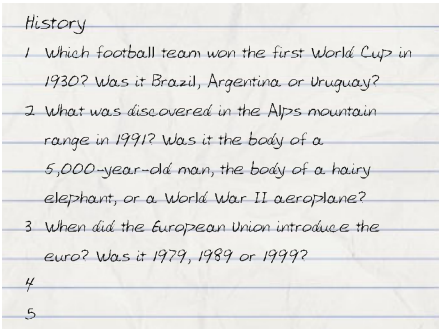 History
1 Which football team won the first World Cup in
1930? Was it Brazil, Argentina or Uruguay?
2 What was discovered in the Alps mountain
range in 1991? Was it the body of a
5,000-year-old man, the body of a hairy
elephant, or a World War II aeroplane?
3 When did the European Union introduce the
euro? Was it 1979, 1989 or 1999?
4
5